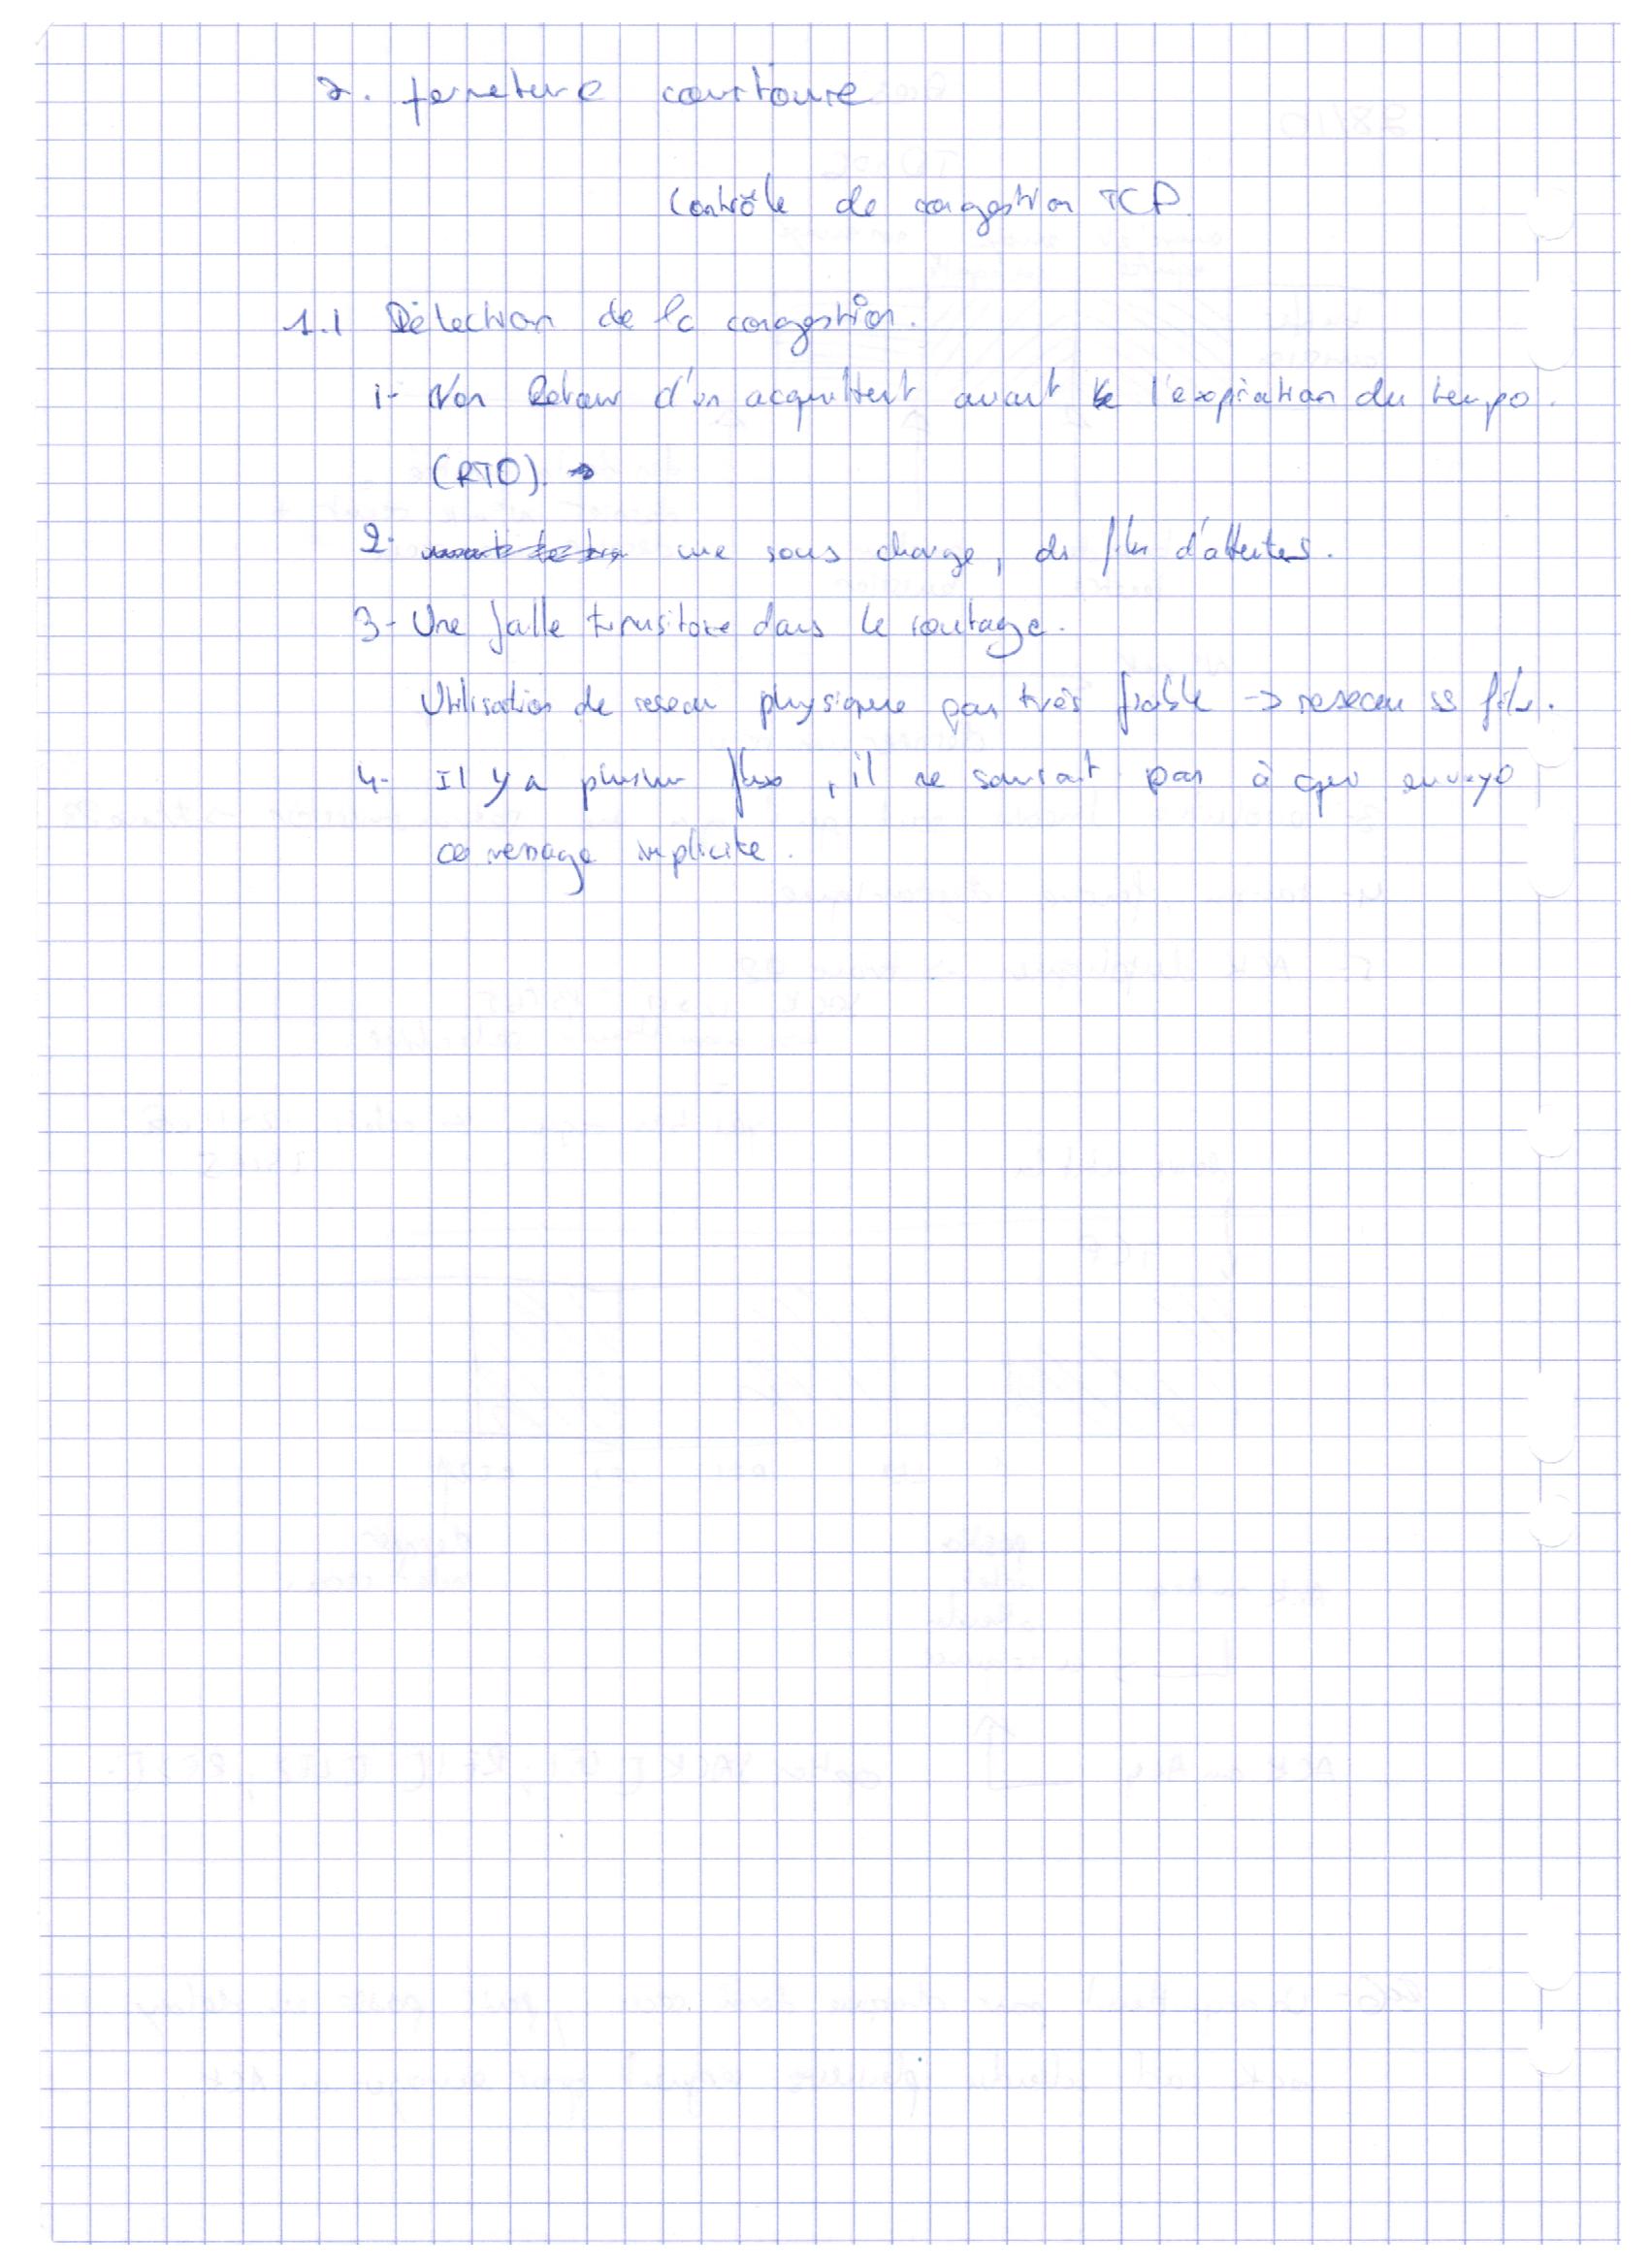 2. fermeture courtoise
Contrôle de congestion TCP.
1.1 Détection de la congestion.
1- Non Retour d'un acquittent avant l'expiration du tempo.
(RTO). →
2- une sous charge, ds files d'attentes.
3- Une faille transitoire dans le routage.
Utilisation de reseau physique pas très fiable -> reseau ss fils.
4- Il y a plusieur flux, il ne saurait pas à qui envoyé
ce message implicite.